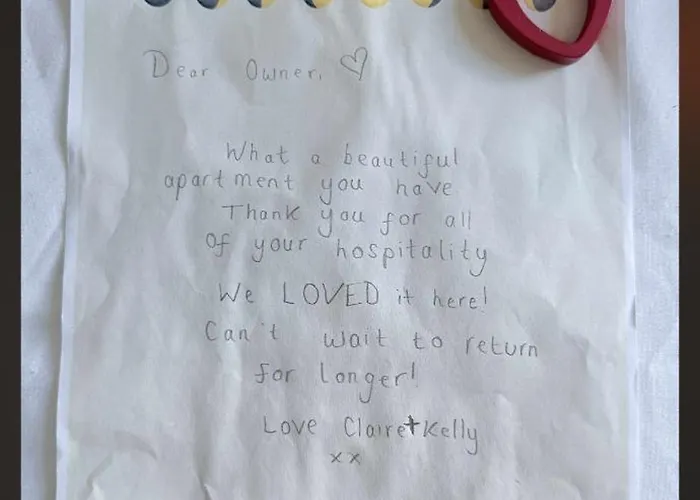 Dear Owner, ♡
What a beautiful
apartment you have
Thank you for all
of your hospitality
We LOVED it here!
Can't wait to return
for longer!
Love Claire+Kelly
xx